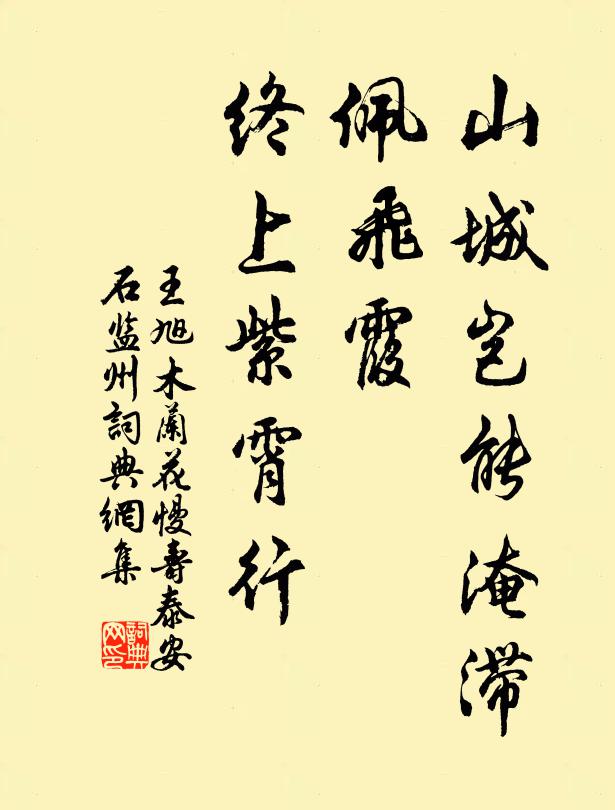 山城岂能淹滞
佩飛霞
终上紫霄行
王旭木蘭花慢壽泰安
石监州詞典網集
詞典
网印